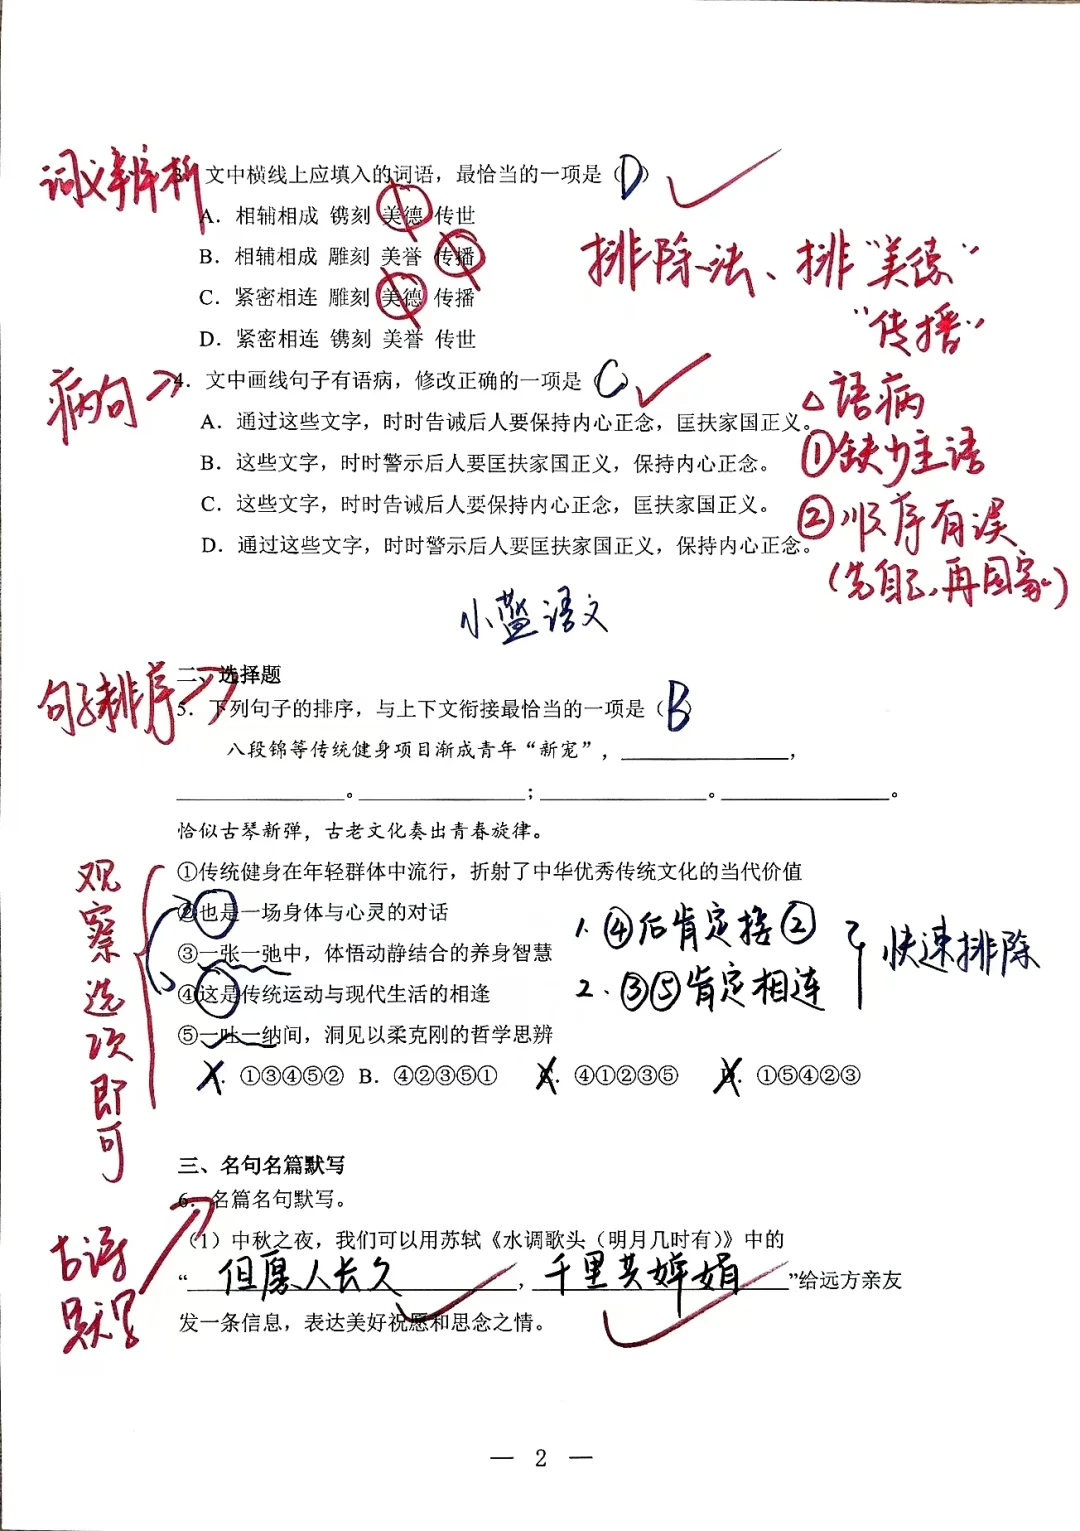 词义辨析
3. 文中横线上应填入的词语，最恰当的一项是（D）
A. 相辅相成 镌刻 美德 传世
B. 相辅相成 雕刻 美誉 传播
C. 紧密相连 雕刻 美德 传播
D. 紧密相连 镌刻 美誉 传世
排除法、排“美德”
“传播”
病句
4. 文中画线句子有语病，修改正确的一项是（C）
A. 通过这些文字，时时告诫后人要保持内心正念，匡扶家国正义。
B. 这些文字，时时警示后人要匡扶家国正义，保持内心正念。
C. 这些文字，时时告诫后人要保持内心正念，匡扶家国正义。
D. 通过这些文字，时时警示后人要匡扶家国正义，保持内心正念。
△语病
①缺少主语
②顺序有误
（先自己，再国家）
小蓝语文
二、选择题
句子排序
5. 下列句子的排序，与上下文衔接最恰当的一项是（B）
八段锦等传统健身项目渐成青年“新宠”，________，
________。________；________。________。
恰似古琴新弹，古老文化奏出青春旋律。
观察选项即可
①传统健身在年轻群体中流行，折射了中华优秀传统文化的当代价值
②也是一场身体与心灵的对话
③一张一弛中，体悟动静结合的养身智慧
④这是传统运动与现代生活的相逢
⑤一吐一纳间，洞见以柔克刚的哲学思辨
1. ④后肯定接②
2. ③⑤肯定相连
快速排除
A. ①③④⑤② B. ④②③⑤① C. ④①②③⑤ D. ①⑤④②③
三、名句名篇默写
6. 名篇名句默写。
古诗默写
（1）中秋之夜，我们可以用苏轼《水调歌头（明月几时有）》中的
“但愿人长久，千里共婵娟”给远方亲友
发一条信息，表达美好祝愿和思念之情。
— 2 —